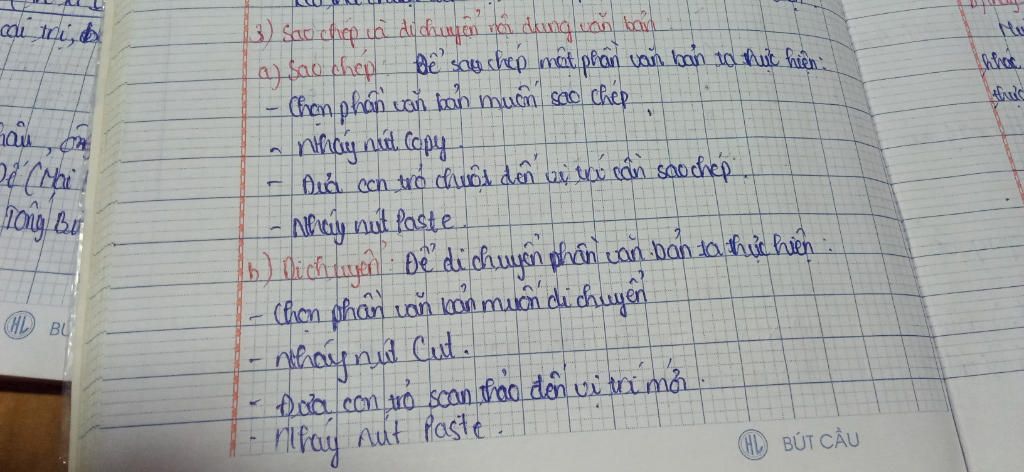 3) Sao chép và di chuyển nội dung văn bản
a) Sao chép: Để sao chép một phần văn bản ta thực hiện:
- Chọn phần văn bản muốn sao chép
- Nháy nút Copy.
- Đưa con trỏ chuột đến vị trí cần sao chép.
- Nháy nút Paste.
b) Di chuyển: Để di chuyển phần văn bản ta thực hiện:
- Chọn phần văn bản muốn di chuyển
- nháy nút Cut.
- Đưa con trỏ soạn thảo đến vị trí mới.
- nháy nút Paste.
HL BÚT CÂU
HL BÚ